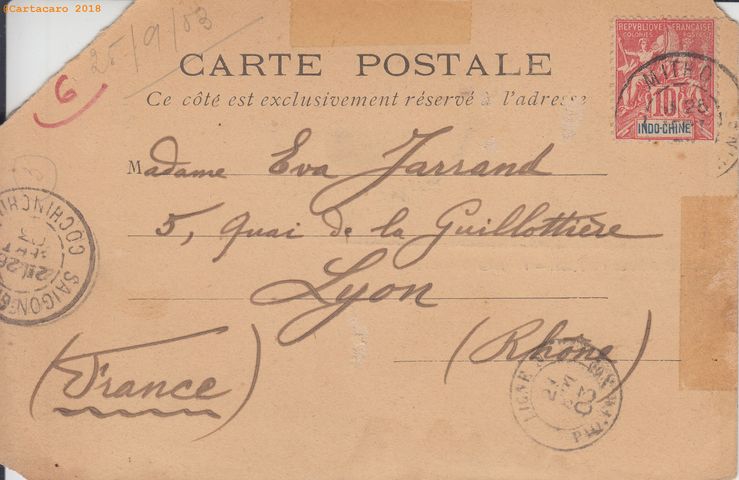 ©Cartacaro 2018
25/9/03
6
CARTE POSTALE
Ce côté est exclusivement réservé à l'adresse
REPUBLIQUE FRANÇAISE
COLONIES POSTES
10
INDO-CHINE
MYTHO
28
Madame Eva Jarrand
5, Quai de la Guillottière
Lyon
(Rhône)
(France)
COCHINCHINE
SEPT
03
SAIGON
LIGNE
PAQ.